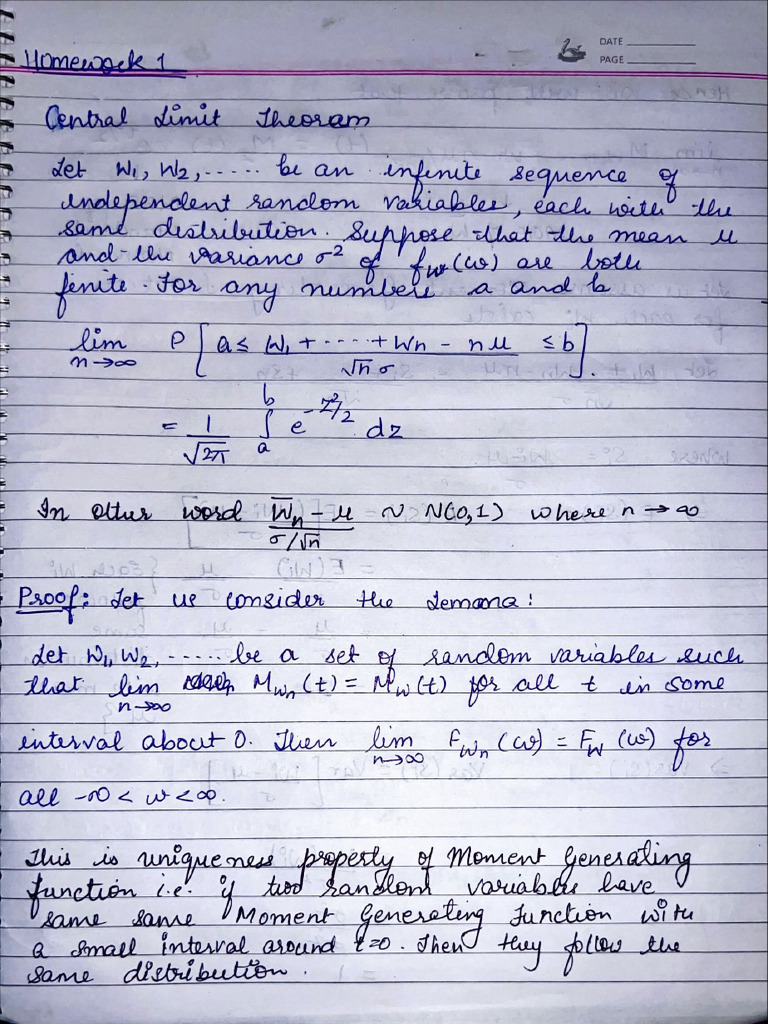 DATE
PAGE
Homework 1
Central Limit Theoram
Let W₁, W₂, ..... be an infinite sequence of
independent random variables, each with the
same distribution. Suppose that the mean μ
and the variance σ² of f_w(w) are both
finite. For any numbers a and b
lim n→∞ P [ a ≤ (W₁ + ..... + Wn - nμ) / (√n σ) ≤ b ].
= 1/√2π ∫_a^b e^(-z²/2) dz
In other word (W̄n - μ) / (σ/√n) ~ N(0,1) where n → ∞
Proof: Let us consider the Lemma:
Let W₁, W₂, ...... be a set of random variables such
that lim n→∞ M_Wn(t) = M_W(t) for all t in some
interval about 0. Then lim n→∞ F_Wn(w) = F_W(w) for
all -∞ < w < ∞.
This is uniqueness property of Moment Generating
function i.e. if two random variables have
same same Moment Generating Function with
a small interval around t=0. Then they follow the
same distribution.